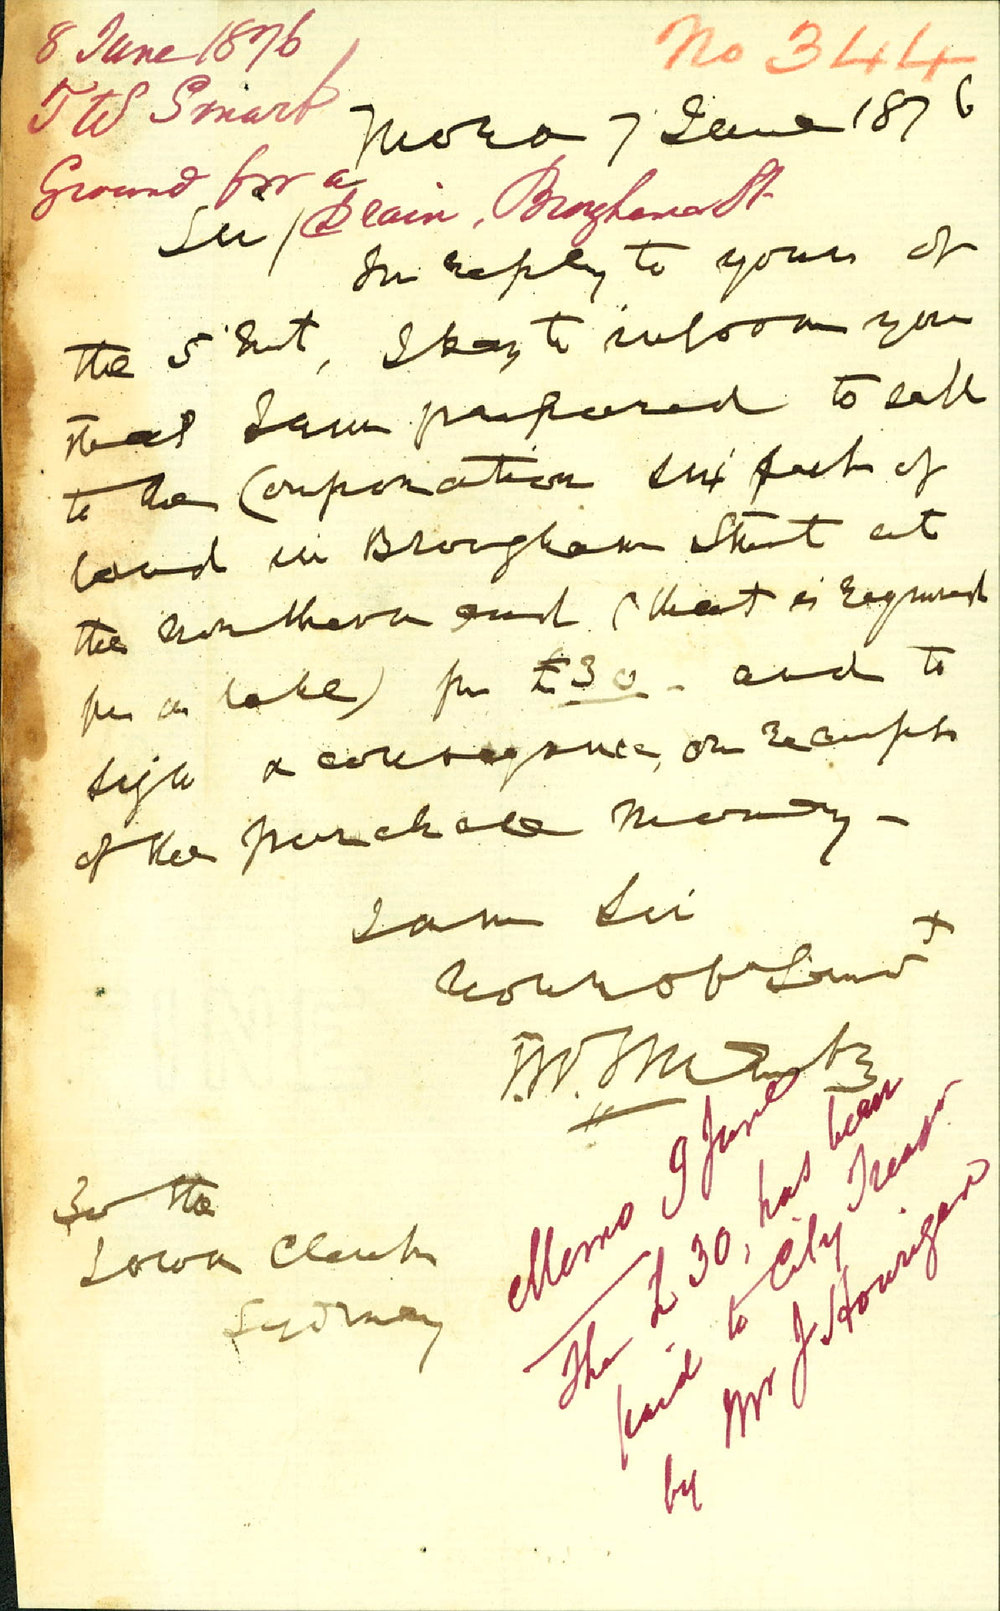 8 June 1876
No 344
T W Smart
Mona 7 June 1876
Ground for a
Drain, Brougham St
Sir/
In reply to yours of
the 5 Inst, I beg to inform you
that I am prepared to sell
to the Corporation six feet of
land in Brougham Street at
the northern end (that is required
for a lane) for £30 - and to
sign a conveyance, on receipt
of the purchase money -
I am Sir
Your ob Servt
T.W. Smart
To the
Town Clerk
Sydney
Memo 9 June
The £30, has been
paid to City Treasr
by Mr J. Hourigan